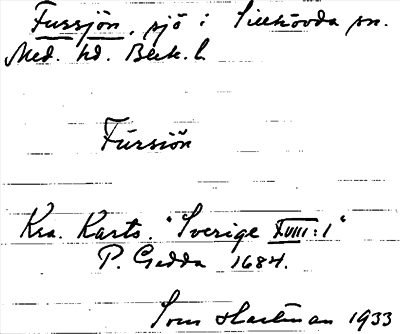 Fussjön, sjö i Sillhövda sn.
Med. hd. Blek. l.
Fursiön
Kra. Karto. "Sverige XVIII:1"
P. Gedda 1684.
Sven Hartman 1933